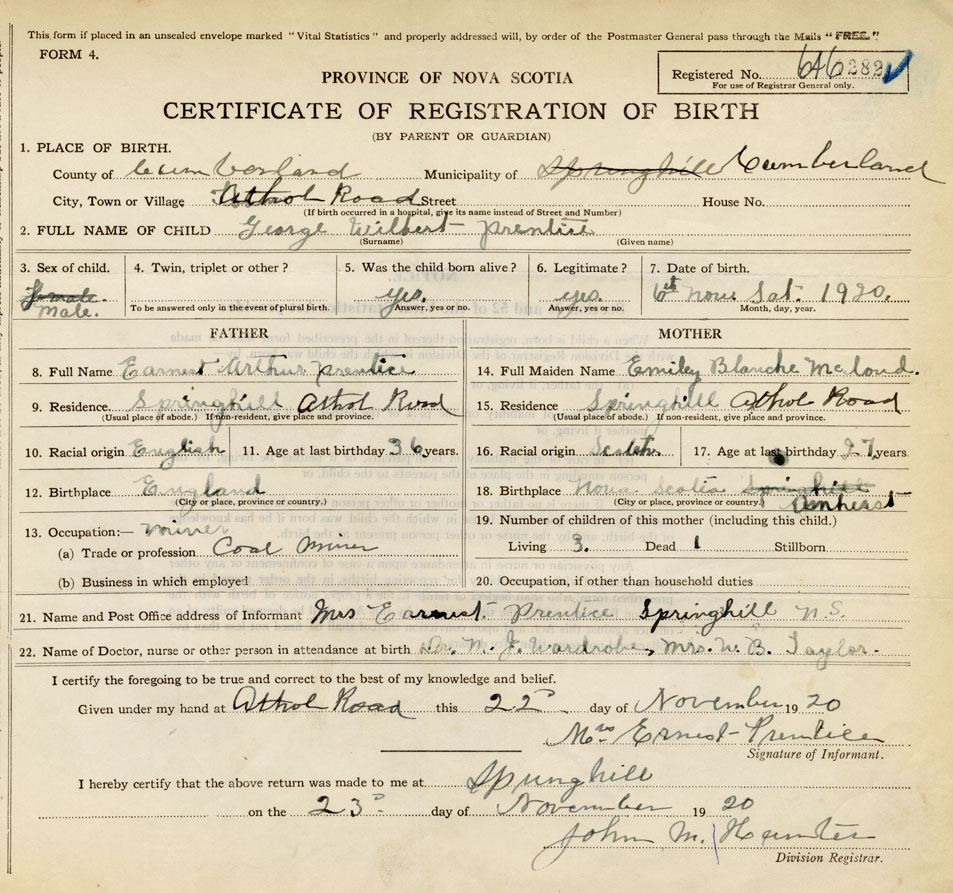 This form if placed in an unsealed envelope marked "Vital Statistics" and properly addressed will, by order of the Postmaster General pass through the Mails "FREE."
FORM 4.
PROVINCE OF NOVA SCOTIA
Registered No. 646282
For use of Registrar General only.
CERTIFICATE OF REGISTRATION OF BIRTH
(BY PARENT OR GUARDIAN)
1. PLACE OF BIRTH.
County of Cumberland Municipality of Springhill Cumberland
City, Town or Village Athol Road Street House No.
(If birth occurred in a hospital, give its name instead of Street and Number)
2. FULL NAME OF CHILD George Wilbert Prentice
(Surname) (Given name)
3. Sex of child. 4. Twin, triplet or other? 5. Was the child born alive? 6. Legitimate? 7. Date of birth.
female. yes. yes. 6th Nov Sat. 1920.
male. To be answered only in the event of plural birth. Answer, yes or no. Answer, yes or no. Month, day, year.
FATHER MOTHER
8. Full Name Earnest Arthur Prentice 14. Full Maiden Name Emiley Blanche Mcloud.
9. Residence. Springhill Athol Road 15. Residence Springhill Athol Road
(Usual place of abode.) If non-resident, give place and province. (Usual place of abode.) If non-resident, give place and province.
10. Racial origin English 11. Age at last birthday 36 years. 16. Racial origin Scotch. 17. Age at last birthday 27 years
12. Birthplace England 18. Birthplace Nova Scotia Springhill
(City or place, province or country.) (City or place, province or country.) Amherst
13. Occupation:— miner 19. Number of children of this mother (including this child.)
(a) Trade or profession Coal Miner Living 3. Dead 1 Stillborn
(b) Business in which employed 20. Occupation, if other than household duties
21. Name and Post Office address of Informant Mrs Earnest Prentice Springhill N.S.
22. Name of Doctor, nurse or other person in attendance at birth Dr. N. J. Wardrobe, Mrs. W. B. Taylor.
I certify the foregoing to be true and correct to the best of my knowledge and belief.
Given under my hand at Athol Road this 22d day of November 1920
Mrs Ernest Prentice
Signature of Informant.
I hereby certify that the above return was made to me at Springhill
on the 23d day of November 1920
John M. Hunter
Division Registrar.